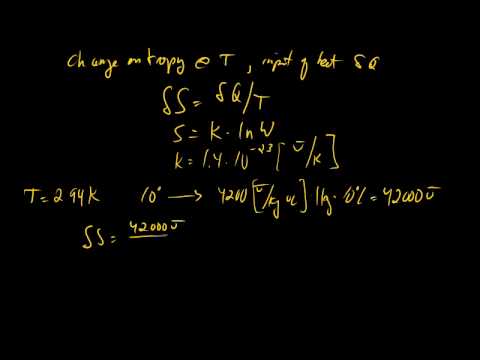 Change entropy @ T, input of heat δQ
δS = δQ/T
S = K · ln W
K = 1.4 · 10^-23 [J/K]
T = 294K 10° → 4200 [J/kg °C] 1kg · 10°C = 42000J
δS = 42000J